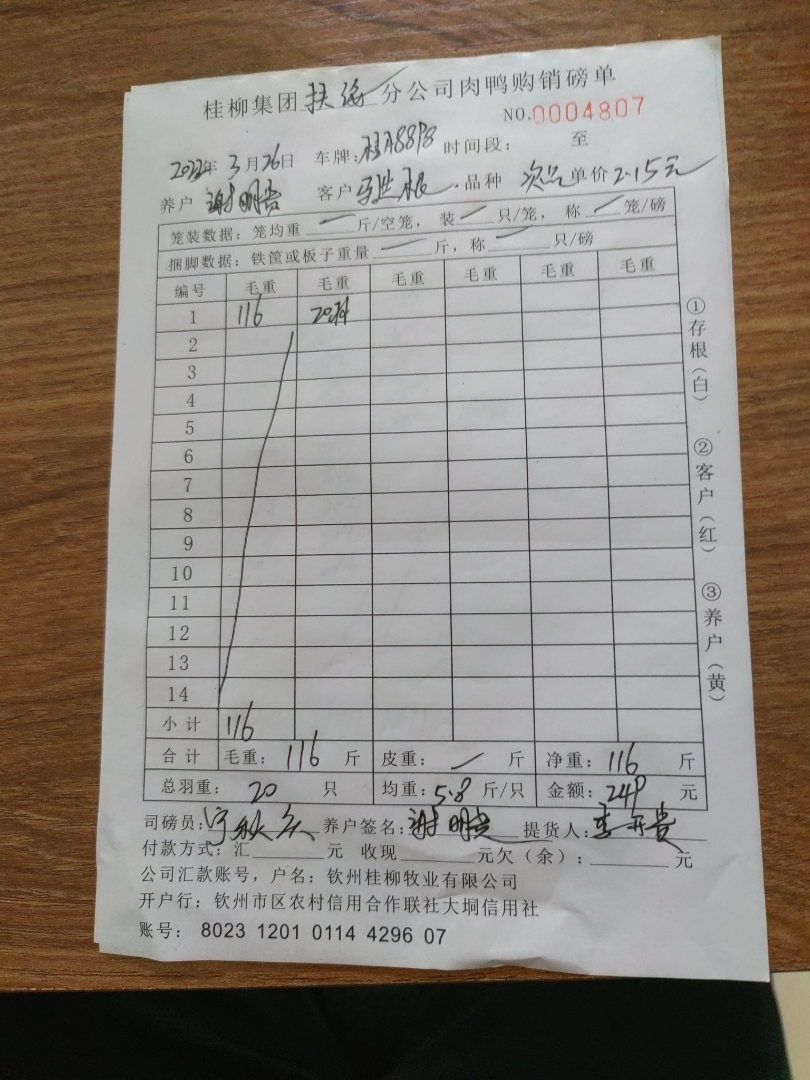 桂柳集团扶绥分公司肉鸭购销磅单
NO.0004807
2022年3月26日 车牌: 时间段: 至
养户 谢明贵 客户 品种 次品 单价 2.15元
笼装数据：笼均重 — 斤/空笼，装 — 只/笼，称 — 笼/磅
捆脚数据：铁筐或板子重量 — 斤，称 — 只/磅
编号 毛重 毛重 毛重 毛重 毛重 毛重
1 116 20只
2
3
4
5
6
7
8
9
10
11
12
13
14
小计 116
合计 毛重：116 斤 皮重：— 斤 净重：116 斤
总羽重：20 只 均重：5.8 斤/只 金额：249 元
司磅员： 养户签名：谢明贵 提货人：李开贵
付款方式：汇 元 收现 元欠（余）： 元
公司汇款账号，户名：钦州桂柳牧业有限公司
开户行：钦州市区农村信用合作联社大垌信用社
账号： 8023 1201 0114 4296 07
①存根（白）
②客户（红）
③养户（黄）